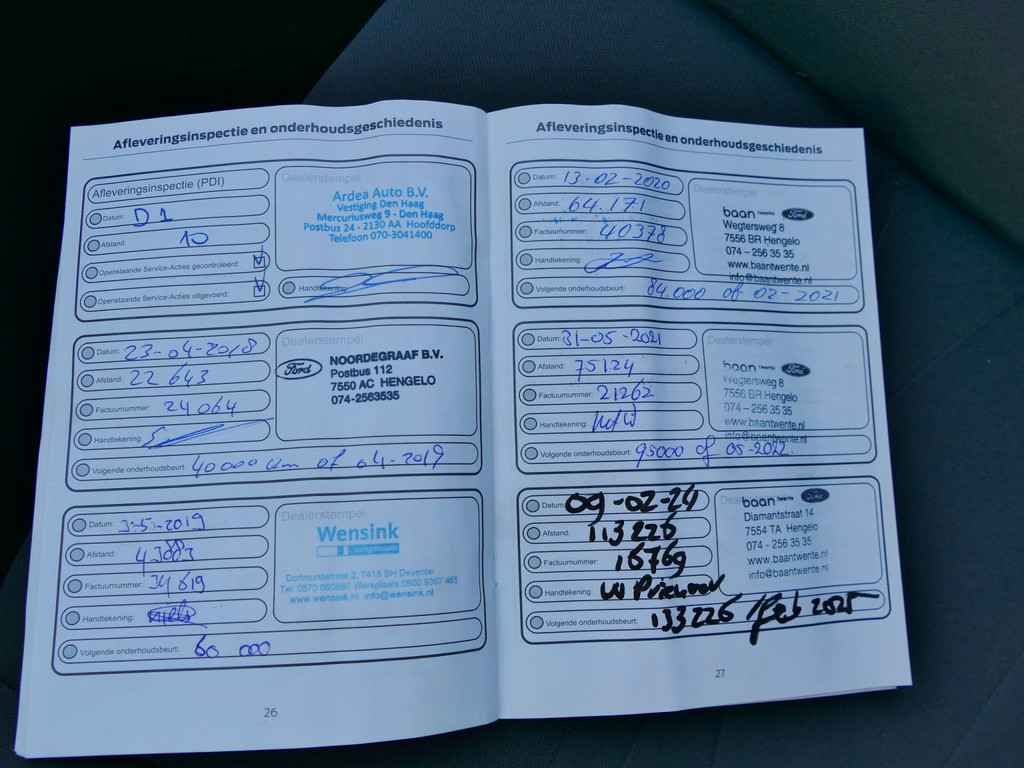 Afleveringsinspectie en onderhoudsgeschiedenis
Afleveringsinspectie (PDI)
Datum: D1
Afstand: 10
Openstaande Service-Acties gecontroleerd:
Openstaande Service-Acties uitgevoerd:
Dealerstempel
Ardea Auto B.V.
Vestiging Den Haag
Mercuriusweg 9 - Den Haag
Postbus 24 - 2130 AA Hoofddorp
Telefoon 070-3041400
Handtekening:
Datum: 23-04-2018
Afstand: 22 643
Factuurnummer: 24064
Handtekening:
Volgende onderhoudsbeurt: 40000 km of 04-2019
Dealerstempel
Ford
NOORDEGRAAF B.V.
Postbus 112
7550 AC HENGELO
074-2563535
Datum: 3-5-2019
Afstand: 43883
Factuurnummer: 34619
Handtekening:
Volgende onderhoudsbeurt: 60 000
Dealerstempel
Wensink
2, 7418 BH Deventer
www.wensink.nl info@wensink.nl
26
Afleveringsinspectie en onderhoudsgeschiedenis
Datum: 13-02-2020
Afstand: 64.171
Factuurnummer: 40378
Handtekening:
Volgende onderhoudsbeurt: 84.000 of 02-2021
Dealerstempel
baan twente Ford
Wegtersweg 8
7556 BR Hengelo
074 - 256 35 35
www.baantwente.nl
info@baantwente.nl
Datum: 31-05-2021
Afstand: 75124
Factuurnummer: 21262
Handtekening:
Volgende onderhoudsbeurt: 95000 of 05-2022.
Dealerstempel
baan twente Ford
Wegtersweg 8
7556 BR Hengelo
074 - 256 35 35
www.baantwente.nl
info@baantwente.nl
Datum: 09-02-24
Afstand: 113226
Factuurnummer: 16769
Handtekening: W
Volgende onderhoudsbeurt: 133226 / feb 2025
baan twente Ford
Diamantstraat 14
7554 TA Hengelo
074 - 256 35 35
www.baantwente.nl
info@baantwente.nl
27